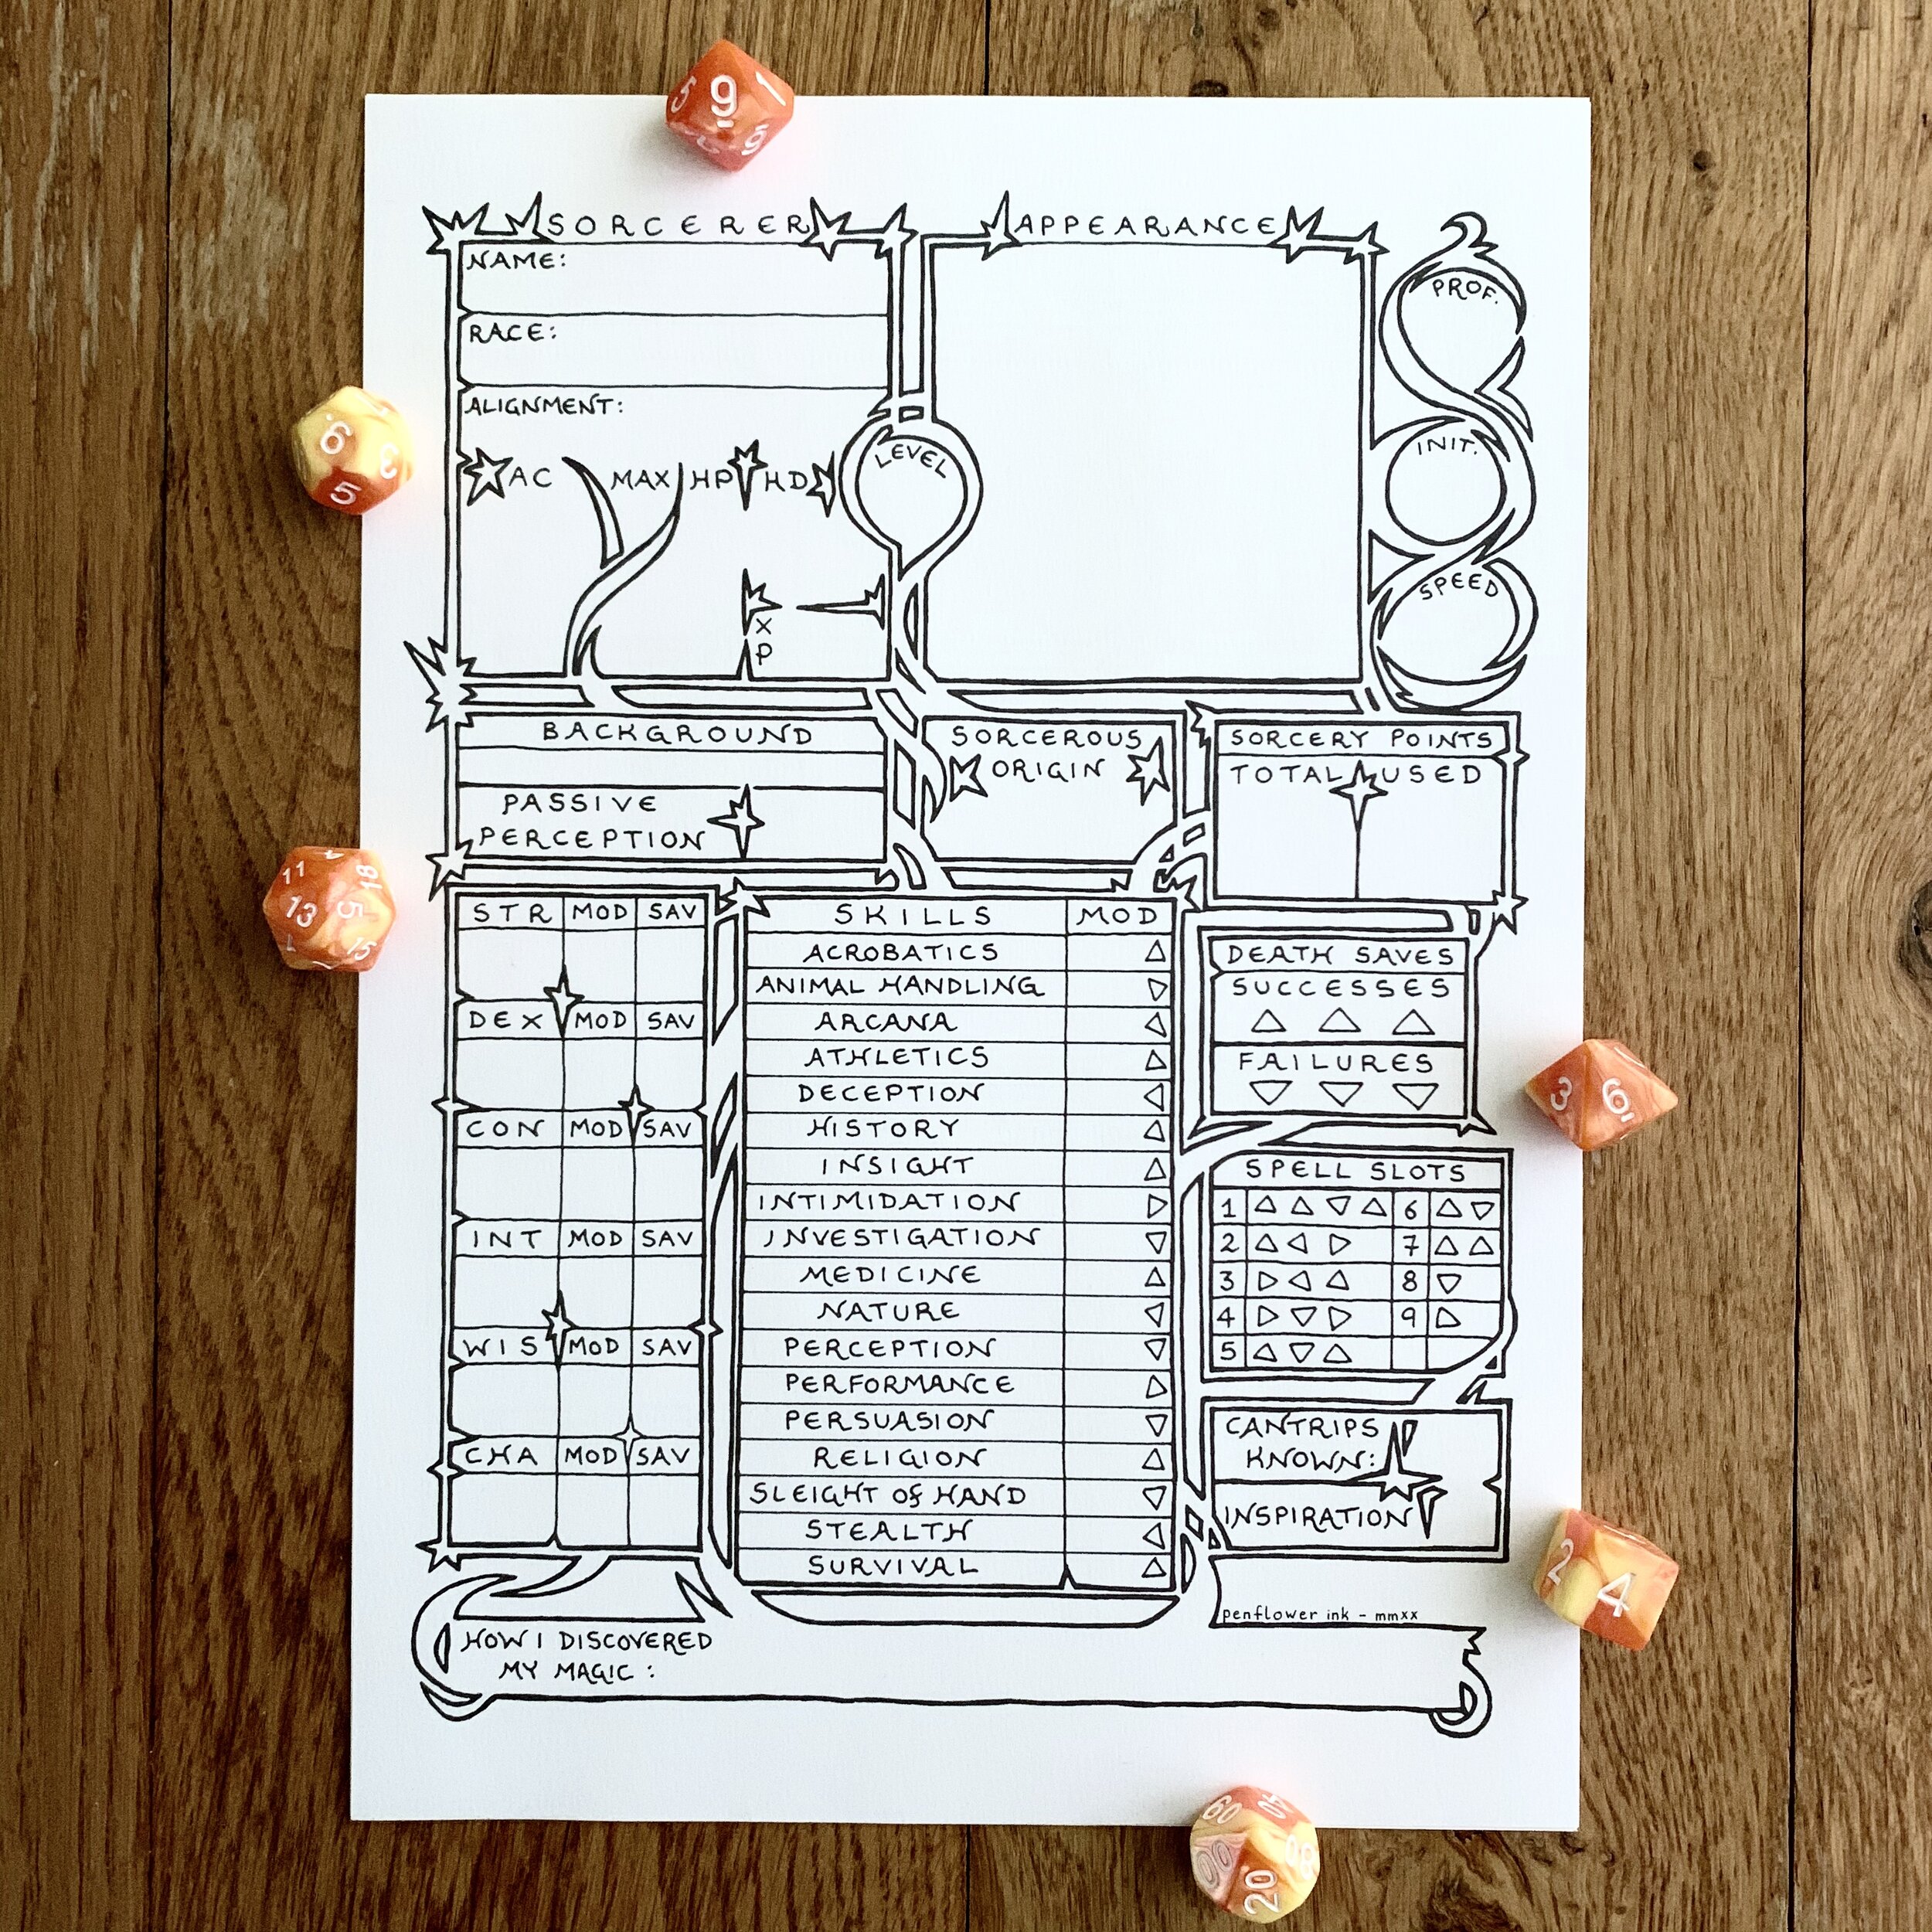 SORCERER
NAME:
RACE:
ALIGNMENT:
AC MAX HP HD
XP
LEVEL
APPEARANCE
PROF.
INIT.
SPEED
BACKGROUND
PASSIVE
PERCEPTION
SORCEROUS
ORIGIN
SORCERY POINTS
TOTAL USED
STR MOD SAV
DEX MOD SAV
CON MOD SAV
INT MOD SAV
WIS MOD SAV
CHA MOD SAV
SKILLS MOD
ACROBATICS
ANIMAL HANDLING
ARCANA
ATHLETICS
DECEPTION
HISTORY
INSIGHT
INTIMIDATION
INVESTIGATION
MEDICINE
NATURE
PERCEPTION
PERFORMANCE
PERSUASION
RELIGION
SLEIGHT Of HAND
STEALTH
SURVIVAL
DEATH SAVES
SUCCESSES
FAILURES
SPELL SLOTS
1 6
2 7
3 8
4 9
5
CANTRIPS
KNOWN:
INSPIRATION
penflower ink - mmxx
HOW I DISCOVERED
MY MAGIC :
5 9 1
9
6
3
5
11
18
13 5
15
3 6
2 4
60
00
20